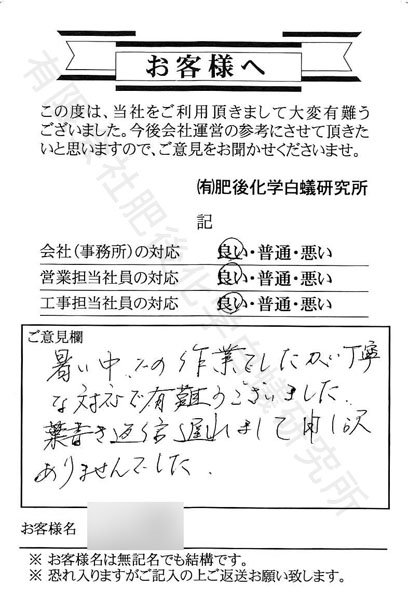 お客様へ
この度は、当社をご利用頂きまして大変有難う
ございました。今後会社運営の参考にさせて頂きた
いと思いますので、ご意見をお聞かせくださいませ。
㈲肥後化学白蟻研究所
記
会社（事務所）の対応 良い・普通・悪い
営業担当社員の対応 良い・普通・悪い
工事担当社員の対応 良い・普通・悪い
ご意見欄
暑い中での作業でしたが、丁寧
な対応で有難うございました。
葉書き返信遅れまして申し訳
ありませんでした。
お客様名
※ お客様名は無記名でも結構です。
※ 恐れ入りますがご記入の上ご返送お願い致します。
有限会社肥後化学白蟻研究所